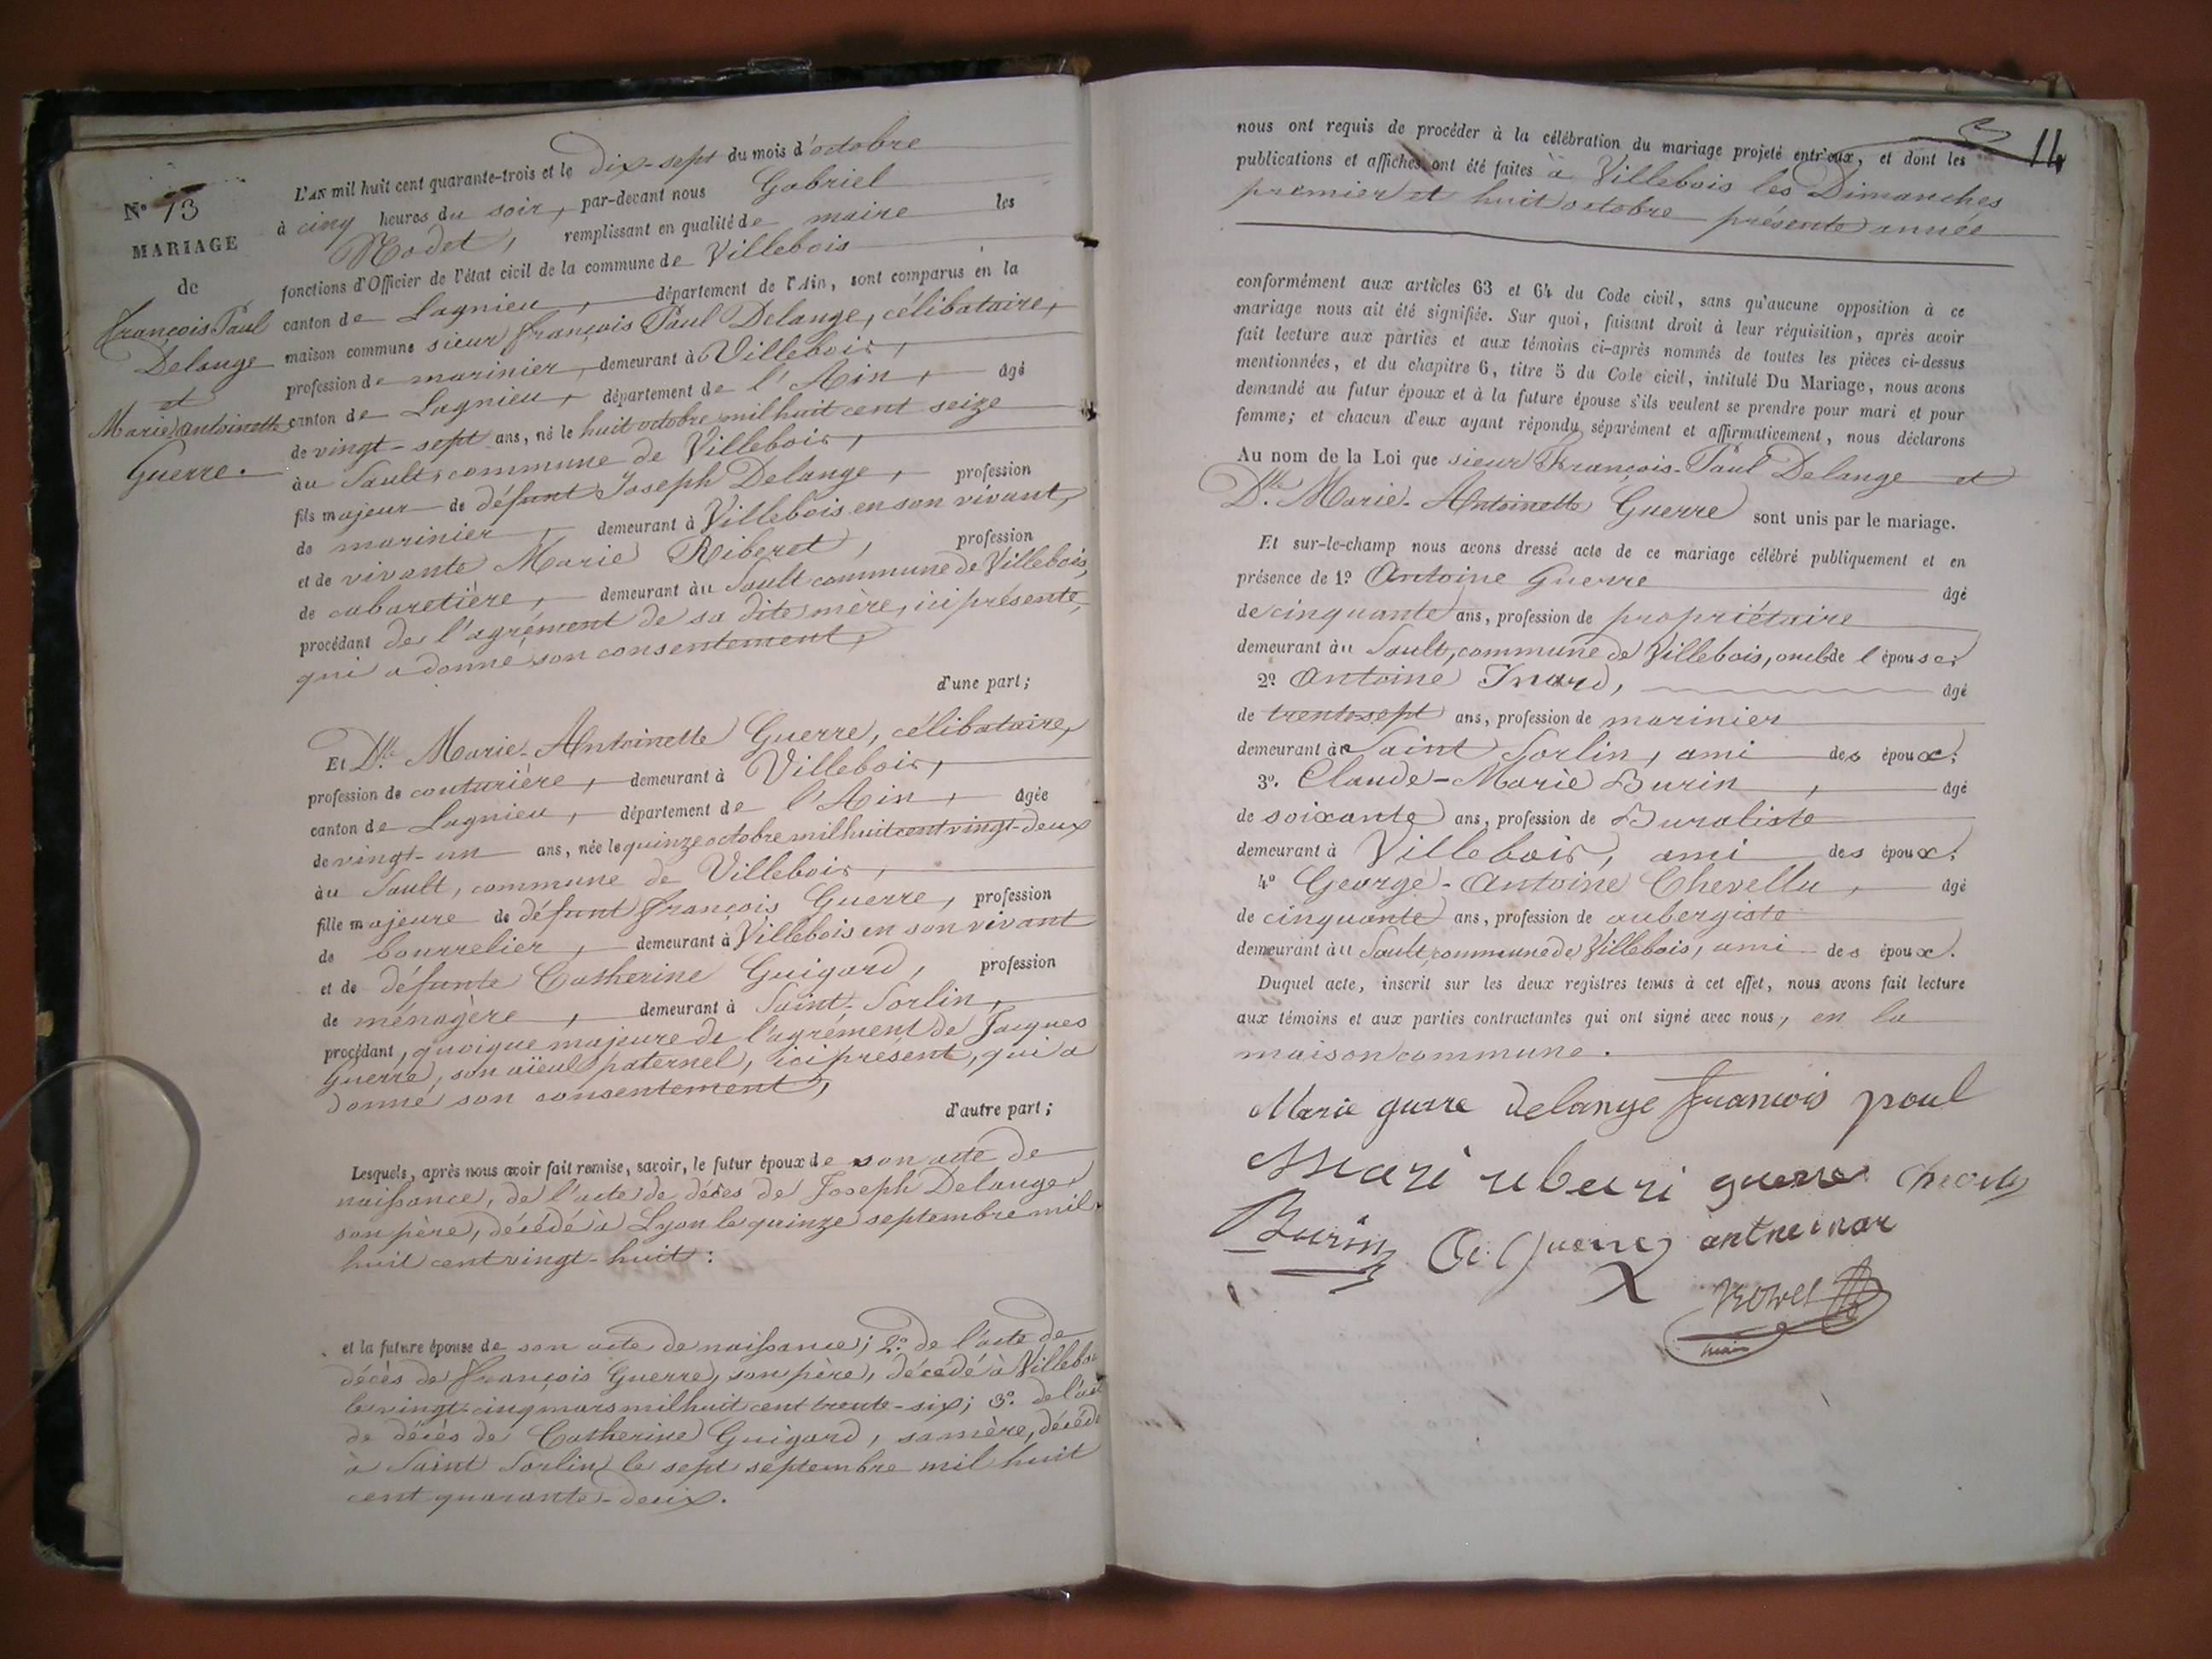 N° 13
MARIAGE
de
François Paul
Delange
et
Marie Antoinette
Guerre.
L'AN mil huit cent quarante-trois et le dix-sept du mois d'octobre
à cinq heures du soir, par-devant nous Gabriel
Rodet, remplissant en qualité de maire les
fonctions d'Officier de l'état civil de la commune de Villebois
canton de Lagnieu, département de l'Ain, sont comparus en la
maison commune sieur françois Paul Delange, célibataire,
profession de marinier, demeurant à Villebois,
canton de Lagnieu, département de l'Ain, âgé
de vingt-sept ans, né le huit octobre mil huit cent seize
au Sault, commune de Villebois,
fils majeur de défunt Joseph Delange, profession
de marinier, demeurant à Villebois en son vivant,
et de vivante Marie Riberet, profession
de cabaretière, demeurant au Sault commune de Villebois,
procédant de l'agrément de sa dite mère, ici présente,
qui a donné son consentement,
d'une part;
Et Dlle Marie-Antoinette Guerre, célibataire,
profession de couturière, demeurant à Villebois,
canton de Lagnieu, département de l'Ain, âgée
de vingt-un ans, née le quinze octobre mil huit cent vingt-deux
au Sault, commune de Villebois,
fille majeure de défunt françois Guerre, profession
de bourrelier, demeurant à Villebois en son vivant
et de défunte Catherine Guigard, profession
de ménagère, demeurant à Saint-Sorlin,
procédant, quoique majeure de l'agrément de Jacques
Guerre, son aïeul paternel, ici présent, qui a
donné son consentement,
d'autre part;
Lesquels, après nous avoir fait remise, savoir, le futur époux de son acte de
naissance, de l'acte de décès de Joseph Delange
son père, décédé à Lyon le quinze septembre mil
huit cent vingt-huit:
et la future épouse de son acte de naissance; 2° de l'acte de
décès de françois Guerre, son père, décédé à Villebois
le vingt-cinq mars mil huit cent trente-six; 3° de l'acte
de décès de Catherine Guigard, sa mère, décédé
à Saint Sorlin le sept septembre mil huit
cent quarante-deux.
14
nous ont requis de procéder à la célébration du mariage projeté entr'eux, et dont les
publications et affiches ont été faites à Villebois les Dimanches
premier et huit octobre présente année
conformément aux articles 63 et 64 du Code civil, sans qu'aucune opposition à ce
mariage nous ait été signifiée. Sur quoi, faisant droit à leur réquisition, après avoir
fait lecture aux parties et aux témoins ci-après nommés de toutes les pièces ci-dessus
mentionnées, et du chapitre 6, titre 5 du Code civil, intitulé Du Mariage, nous avons
demandé au futur époux et à la future épouse s'ils veulent se prendre pour mari et pour
femme; et chacun d'eux ayant répondu séparément et affirmativement, nous déclarons
Au nom de la Loi que sieur François-Paul Delange et
Dlle Marie-Antoinette Guerre sont unis par le mariage.
Et sur-le-champ nous avons dressé acte de ce mariage célébré publiquement et en
présence de 1° Antoine Guerre âgé
de cinquante ans, profession de propriétaire
demeurant au Sault, commune de Villebois, oncle de l'épouse;
2° Antoine Inard, âgé
de trente-sept ans, profession de marinier
demeurant à Saint Sorlin, ami des époux;
3°. Claude-Marie Burin, âgé
de soixante ans, profession de Buraliste
demeurant à Villebois, ami des époux;
4° George-Antoine Chevellu, âgé
de cinquante ans, profession de aubergiste
demeurant au Sault, commune de Villebois, ami des époux.
Duquel acte, inscrit sur les deux registres tenus à cet effet, nous avons fait lecture
aux témoins et aux parties contractantes qui ont signé avec nous, en la
maison commune.
Marie guerre delange francois poul
Mari guerre
Burin Guerre
Rodet
maire